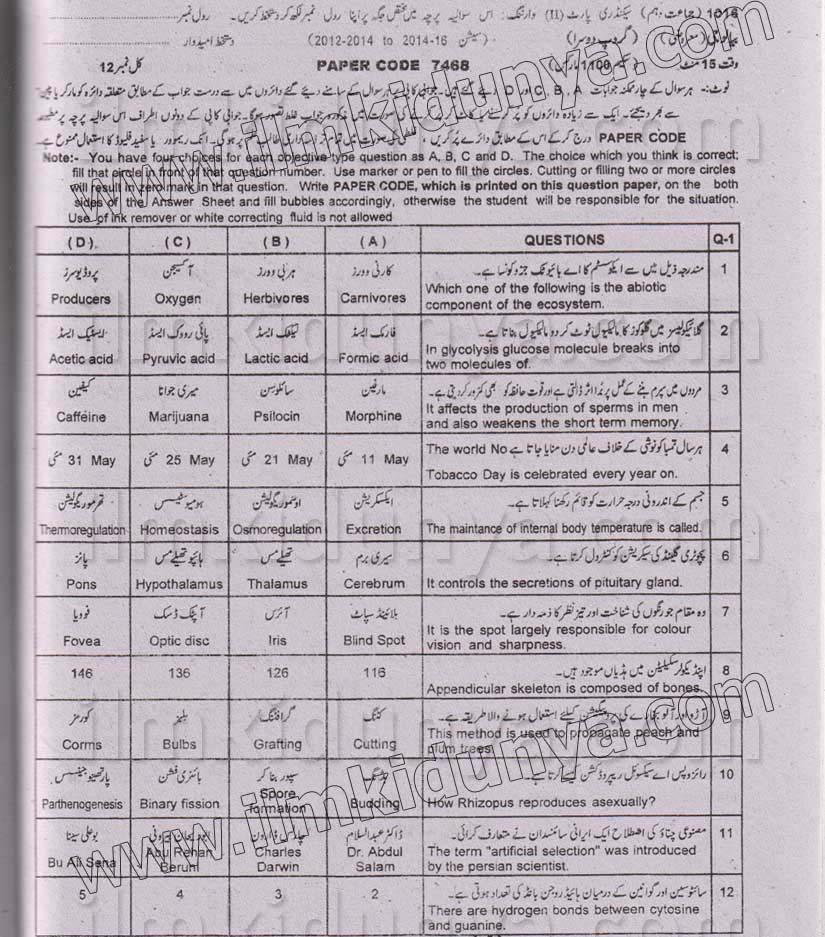 1016 (جماعت دہم) سیکنڈری پارٹ (II) وارننگ: اس سوالیہ پرچہ میں مختص جگہ پر اپنا رول نمبر لکھ کر دستخط کریں۔ رول نمبر
گروپ دوسرا (سیشن 2012-2014 to 2014-16) دستخط امیدوار
وقت 15 منٹ PAPER CODE 7468 کل نمبر 12
PAPER CODE
Note:- You have four choices for each objective type question as A, B, C and D. The choice which you think is correct;
fill that circle in front of that question number. Use marker or pen to fill the circles. Cutting or filling two or more circles
will result in zero mark in that question. Write PAPER CODE, which is printed on this question paper, on the both
sides of the Answer Sheet and fill bubbles accordingly, otherwise the student will be responsible for the situation.
Use of ink remover or white correcting fluid is not allowed
(D) (C) (B) (A) QUESTIONS Q-1
پروڈیوسرز آکسیجن ہربی وورز کارنی وورز مندرجہ ذیل میں سے ایکوسسٹم کا اے بائیوٹک جزو کونسا ہے۔ 1
Producers Oxygen Herbivores Carnivores Which one of the following is the abiotic
component of the ecosystem.
ایسیٹک ایسڈ پائی رووک ایسڈ لیکٹک ایسڈ فارمک ایسڈ گلائیکولیسز میں گلوکوز کا مالیکیول ٹوٹ کر دو مالیکیول بناتا ہے۔ 2
Acetic acid Pyruvic acid Lactic acid Formic acid In glycolysis glucose molecule breaks into
two molecules of.
کیفین میری جوانا سائلوسن مارفین مردوں میں سپرم بننے کے عمل پر برا اثر ڈالتی ہے اور قوت حافظہ کو بھی کمزور کر دیتی ہے۔ 3
Caffeine Marijuana Psilocin Morphine It affects the production of sperms in men
and also weakens the short term memory.
31 May مئی 25 May مئی 21 May مئی 11 May مئی The world No ہر سال تمباکو نوشی کے خلاف عالمی دن منایا جاتا ہے 4
Tobacco Day is celebrated every year on.
تھرموریگولیشن ہومیوسٹیسس اوسموریگولیشن ایکسکریشن جسم کے اندرونی درجہ حرارت کو قائم رکھنا کہلاتا ہے۔ 5
Thermoregulation Homeostasis Osmoregulation Excretion The maintance of internal body temperature is called.
پانز ہائپوتھیلمس تھیلمس سیری برم پچوٹری گلینڈ کی سیکریشن کو کنٹرول کرتا ہے۔ 6
Pons Hypothalamus Thalamus Cerebrum It controls the secretions of pituitary gland.
فوویا آپٹک ڈسک آئرس بلائنڈ سپاٹ وہ مقام جو رنگوں کی شناخت اور تیز نظر کا ذمہ دار ہے۔ 7
Fovea Optic disc Iris Blind Spot It is the spot largely responsible for colour
vision and sharpness.
146 136 126 116 اپنڈیکولر سکیلیٹن میں ہڈیاں موجود ہیں۔ 8
Appendicular skeleton is composed of bones.
کورمز بلبز گرافٹنگ کٹنگ آڑو اور آلو بخارے کی پروپیگیشن کیلئے استعمال ہونے والا طریقہ ہے۔ 9
Corms Bulbs Grafting Cutting This method is used to propagate peach and
plum trees.
پارتھینوجینیسس بائنری فشن سپور بنا کر بڈنگ رائزوپس اے سیکسوئل ریپروڈکشن کیسے کرتا ہے۔ 10
Parthenogenesis Binary fission Spore
formation Budding How Rhizopus reproduces asexually?
بو علی سینا چارلس ڈارون ڈاکٹر عبدالسلام مصنوعی چناؤ کی اصطلاح ایک ایرانی سائنسدان نے متعارف کرائی۔ 11
Bu Ali Sena Abu Rehan
Beruni Charles
Darwin Dr. Abdul
Salam The term "artificial selection" was introduced
by the persian scientist.
5 4 3 2 سائٹوسین اور گوانین کے درمیان ہائیڈروجن بانڈ کی تعداد ہوتی ہے۔ 12
There are hydrogen bonds between cytosine
and guanine.
www.ilmkidunya.com
www.ilmkidunya.com
ilmkidunya.com